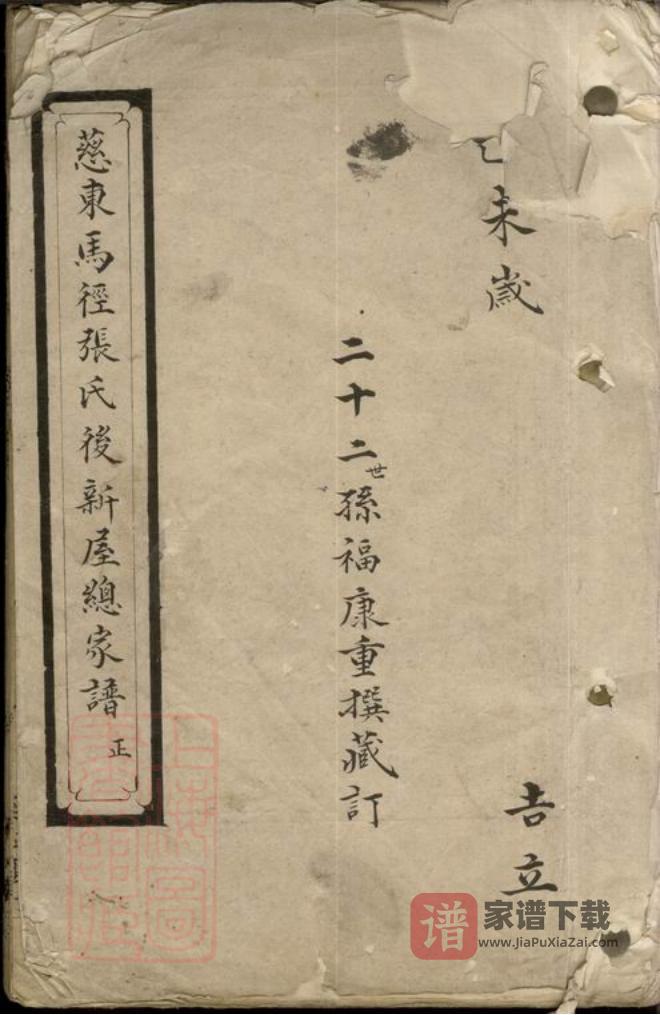 未歲
吉立
二十二世孫福康重撰藏訂
慈東馬徑張氏後新屋總家譜 正
上海圖書館藏
谱 家谱下载
www.JiaPuXiaZai.com